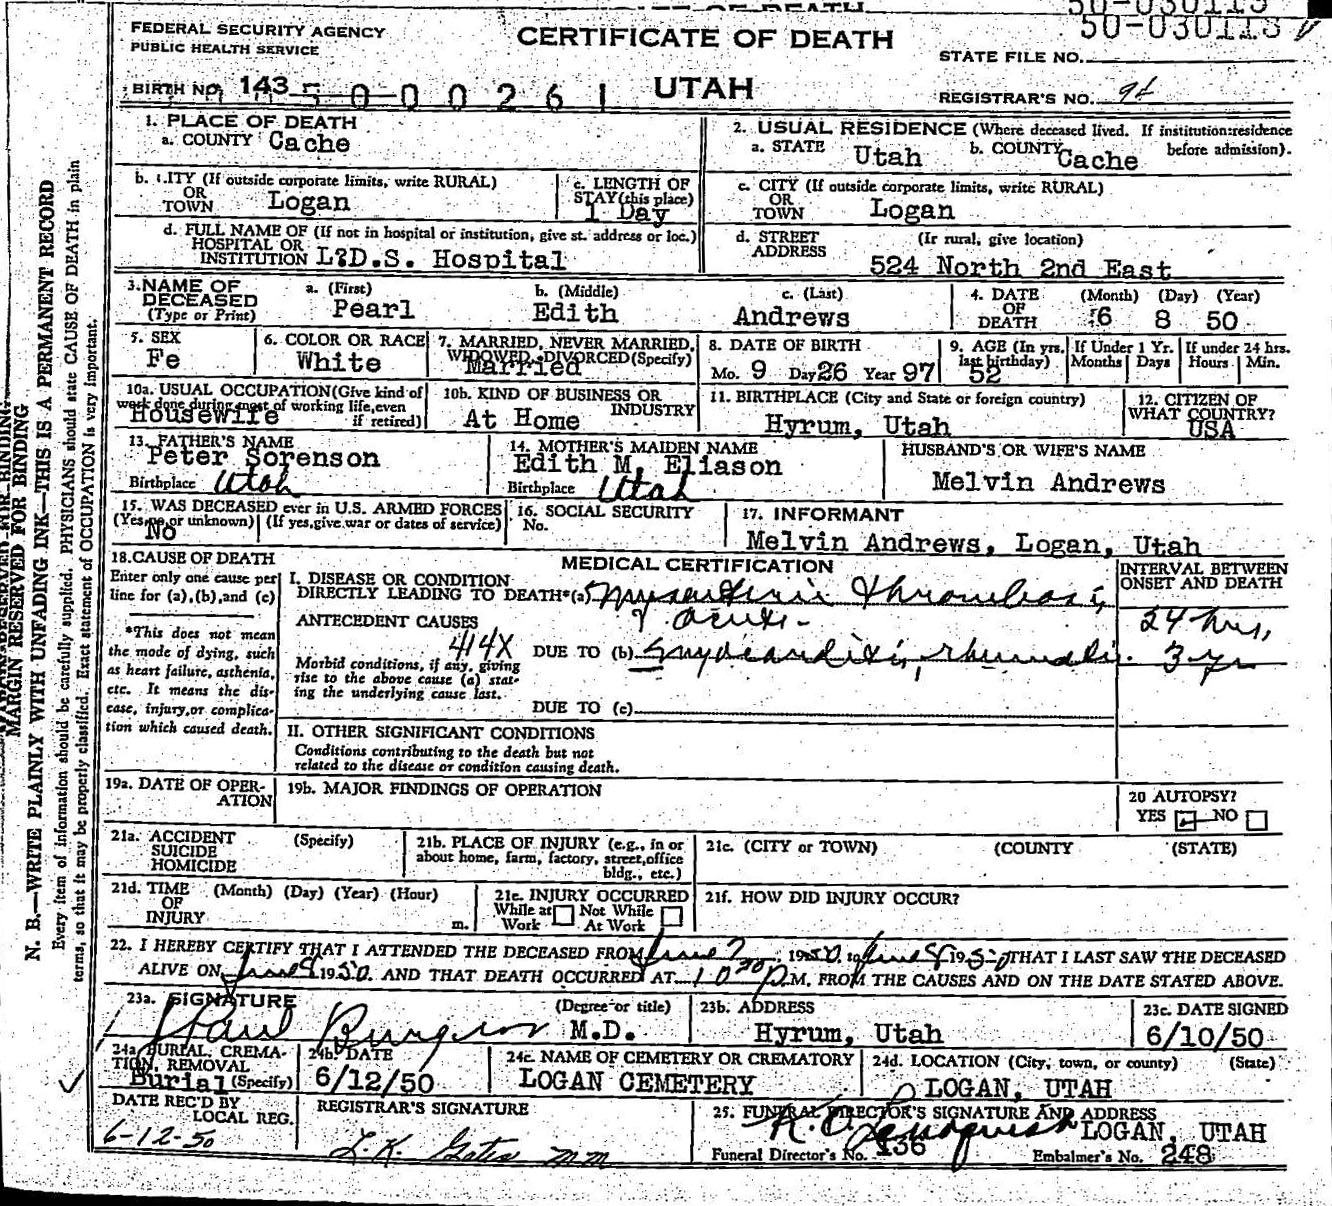 50-030113
FEDERAL SECURITY AGENCY
PUBLIC HEALTH SERVICE
CERTIFICATE OF DEATH
50-030113
STATE FILE NO.
BIRTH NO. 143 5 0 0 0 0 2 6 1
UTAH
REGISTRAR'S NO.
1. PLACE OF DEATH
a. COUNTY Cache
2. USUAL RESIDENCE (Where deceased lived. If institution: residence before admission).
a. STATE Utah b. COUNTY Cache
b. CITY (If outside corporate limits, write RURAL)
OR
TOWN Logan
c. LENGTH OF
STAY (this place)
1 Day
c. CITY (If outside corporate limits, write RURAL)
OR
TOWN Logan
d. FULL NAME OF (If not in hospital or institution, give st. address or loc.)
HOSPITAL OR
INSTITUTION L?D.S. Hospital
d. STREET (If rural, give location)
ADDRESS
524 North 2nd East
3. NAME OF
DECEASED
(Type or Print)
a. (First) b. (Middle) c. (Last)
Pearl Edith Andrews
4. DATE
OF
DEATH
(Month) (Day) (Year)
6 8 50
5. SEX
Fe
6. COLOR OR RACE
White
7. MARRIED, NEVER MARRIED,
WIDOWED, DIVORCED (Specify)
Married
8. DATE OF BIRTH
Mo. 9 Day 26 Year 97
9. AGE (In yrs. last birthday)
52
If Under 1 Yr.
Months Days
If under 24 hrs.
Hours Min.
10a. USUAL OCCUPATION (Give kind of
work done during most of working life, even
if retired)
Housewife
10b. KIND OF BUSINESS OR
INDUSTRY
At Home
11. BIRTHPLACE (City and State or foreign country)
Hyrum, Utah
12. CITIZEN OF
WHAT COUNTRY?
USA
13. FATHER'S NAME
Peter Sorenson
Birthplace Utah
14. MOTHER'S MAIDEN NAME
Edith M. Eliason
Birthplace Utah
HUSBAND'S OR WIFE'S NAME
Melvin Andrews
15. WAS DECEASED ever in U.S. ARMED FORCES
(Yes, no, or unknown) (If yes, give war or dates of service)
No
16. SOCIAL SECURITY
No.
17. INFORMANT
Melvin Andrews, Logan, Utah
18. CAUSE OF DEATH
Enter only one cause per
line for (a), (b), and (c)
*This does not mean
the mode of dying, such
as heart failure, asthenia,
etc. It means the dis-
ease, injury, or complica-
tion which caused death.
MEDICAL CERTIFICATION
I. DISEASE OR CONDITION
DIRECTLY LEADING TO DEATH*(a) thrombosis,
acute.
ANTECEDENT CAUSES
414X
DUE TO (b)
Morbid conditions, if any, giving
rise to the above cause (a) stat-
ing the underlying cause last.
DUE TO (c)
INTERVAL BETWEEN
ONSET AND DEATH
24 hrs,
3 yr
II. OTHER SIGNIFICANT CONDITIONS
Conditions contributing to the death but not
related to the disease or condition causing death.
19a. DATE OF OPER-
ATION
19b. MAJOR FINDINGS OF OPERATION
20 AUTOPSY?
YES NO
21a. ACCIDENT (Specify)
SUICIDE
HOMICIDE
21b. PLACE OF INJURY (e.g., in or
about home, farm, factory, street, office
bldg., etc.)
21c. (CITY or TOWN) (COUNTY (STATE)
21d. TIME (Month) (Day) (Year) (Hour)
OF
INJURY m.
21e. INJURY OCCURRED
While at Not While
Work At Work
21f. HOW DID INJURY OCCUR?
22. I HEREBY CERTIFY THAT I ATTENDED THE DECEASED FROM June 7, 1950, to June 8, 1950, THAT I LAST SAW THE DECEASED
ALIVE ON June 8 1950. AND THAT DEATH OCCURRED AT 10 30 P.M. FROM THE CAUSES AND ON THE DATE STATED ABOVE.
23a. SIGNATURE (Degree or title)
Paul Burgess M.D.
23b. ADDRESS
Hyrum, Utah
23c. DATE SIGNED
6/10/50
24a. BURIAL, CREMA-
TION, REMOVAL
Burial (Specify)
24b. DATE
6/12/50
24c. NAME OF CEMETERY OR CREMATORY
LOGAN CEMETERY
24d. LOCATION (City, town, or county) (State)
LOGAN, UTAH
DATE REC'D BY
LOCAL REG.
6-12-50
REGISTRAR'S SIGNATURE
25. FUNERAL DIRECTOR'S SIGNATURE AND ADDRESS
LOGAN, UTAH
Funeral Director's No. 136 Embalmer's No. 248
MARGIN RESERVED FOR BINDING
N. B.—WRITE PLAINLY WITH UNFADING INK—THIS IS A PERMANENT RECORD
Every item of information should be carefully supplied. PHYSICIANS should state CAUSE OF DEATH in plain
terms, so that it may be properly classified. Exact statement of OCCUPATION is very important.